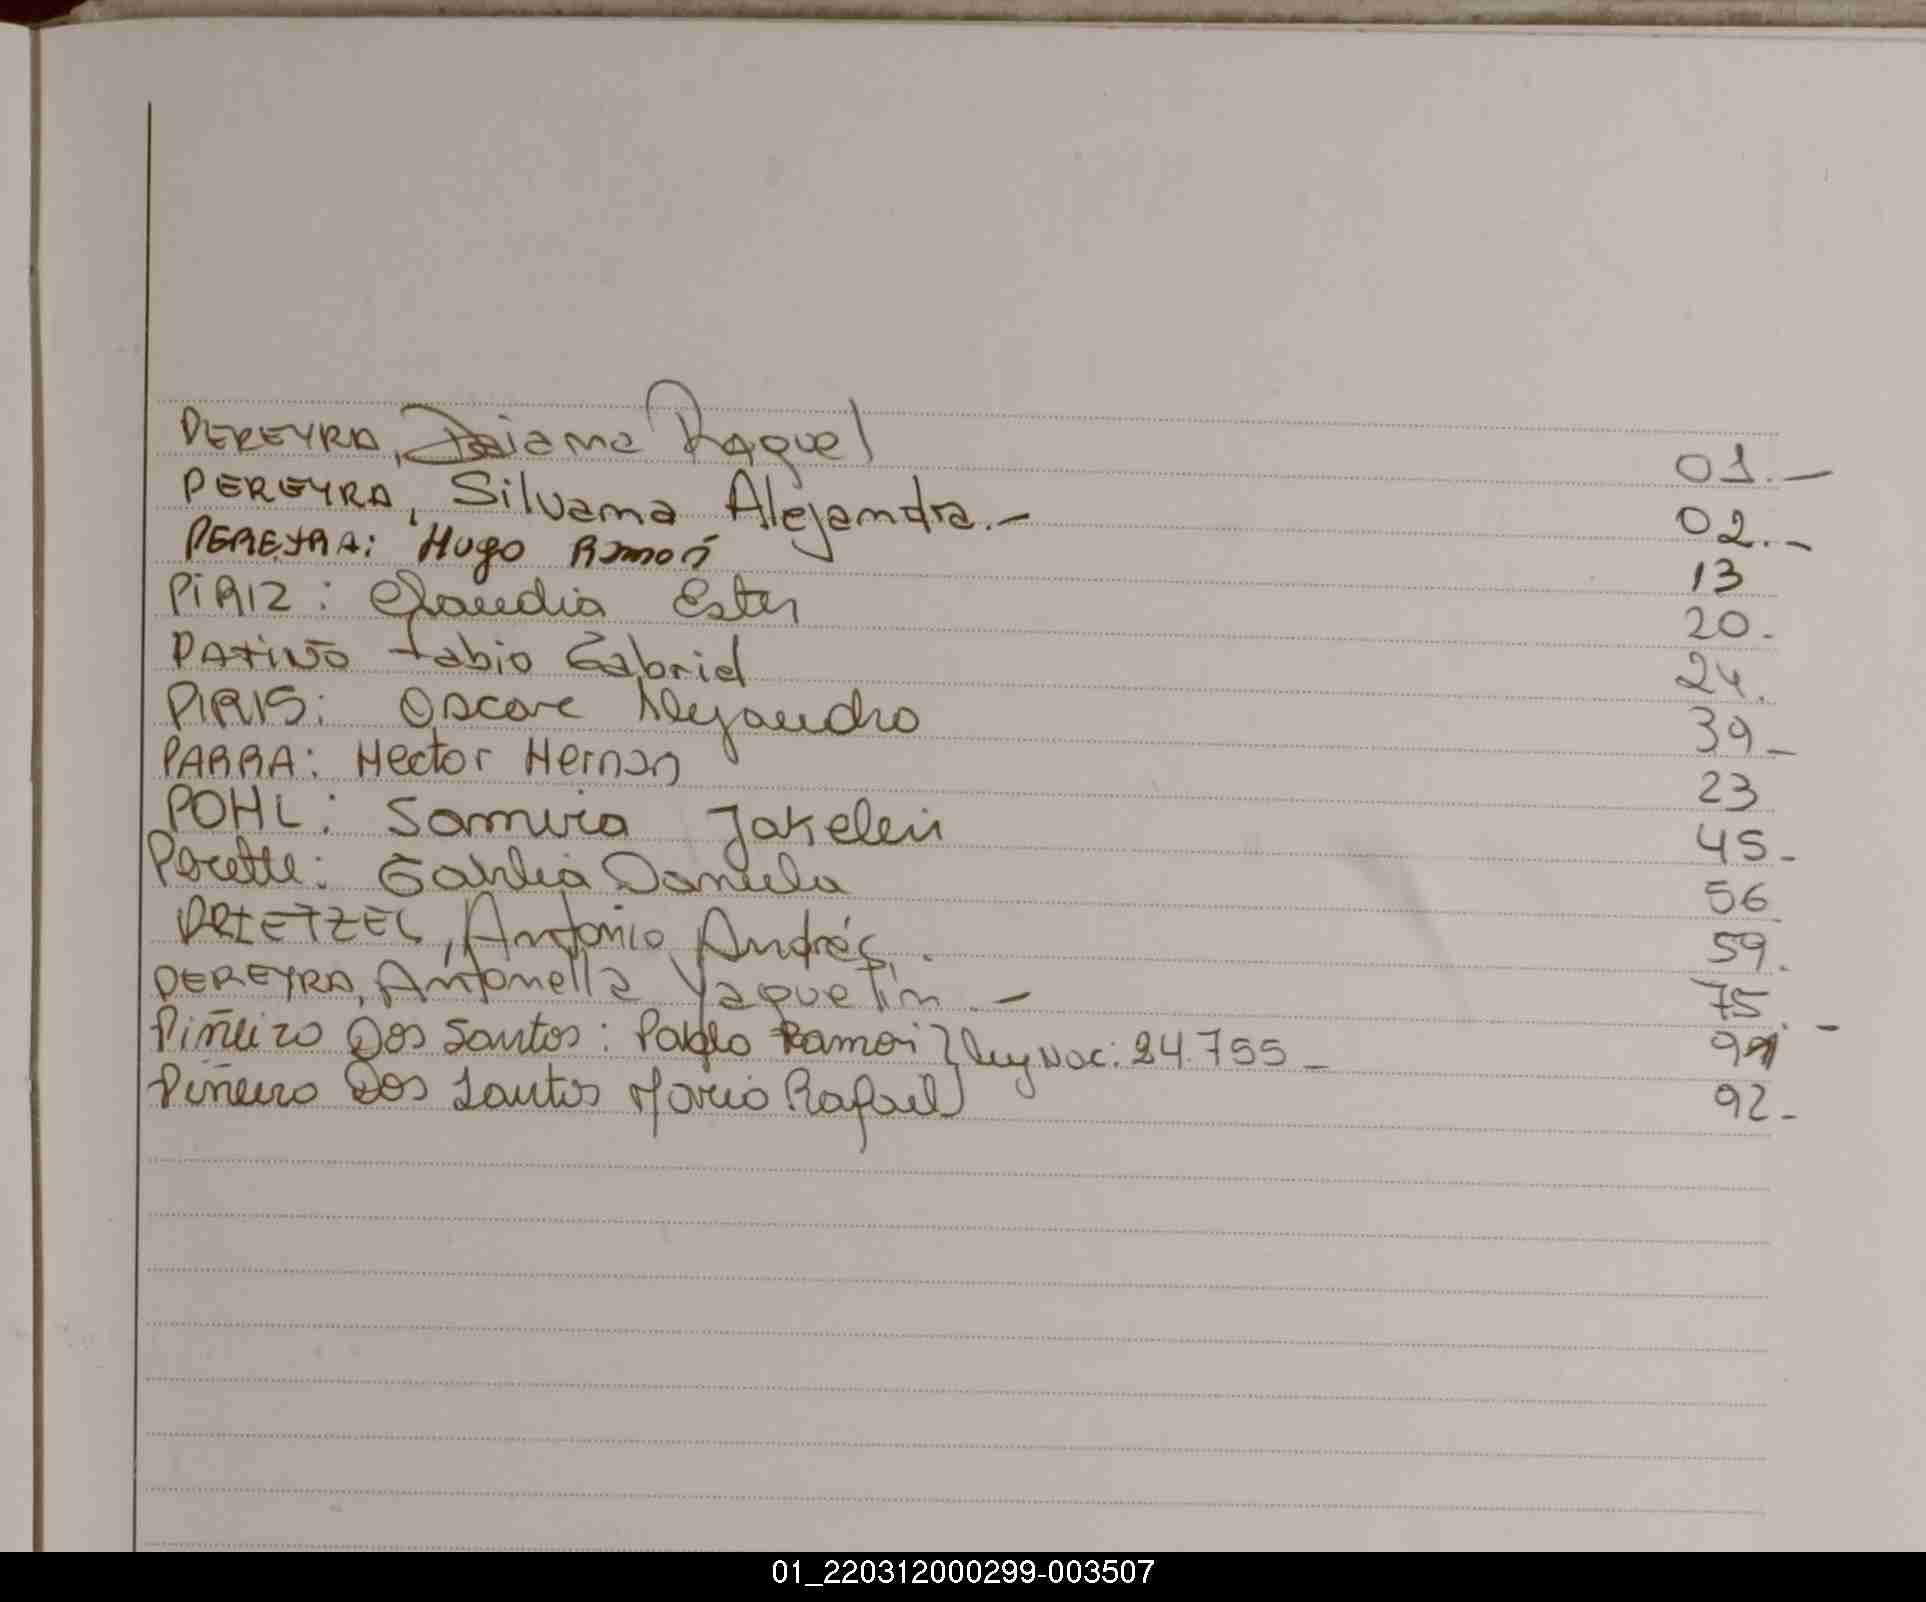 PEREYRA, Daiana Raquel 01.-
PEREYRA, Silvana Alejandra.- 02.-
PEREYRA: Hugo Ramón 13
PiRIZ: Claudia Ester 20.
PATIÑO Fabio Gabriel 24.
PIRIS: Oscar Alejandro 39-
PARRA: Hector Hernan 23
POHL: Samira Jakelin 45-
Daniela 56
PRIETZEL, Antonio Andrés. 59.
PEREYRA, Antonella Yaquelin.- 75.-
Piñeiro Dos Santos: Pablo Ramon } ley Nac: 24.755- 91
Piñeiro Dos Santos Mario Rafael } 92-
01_220312000299-003507